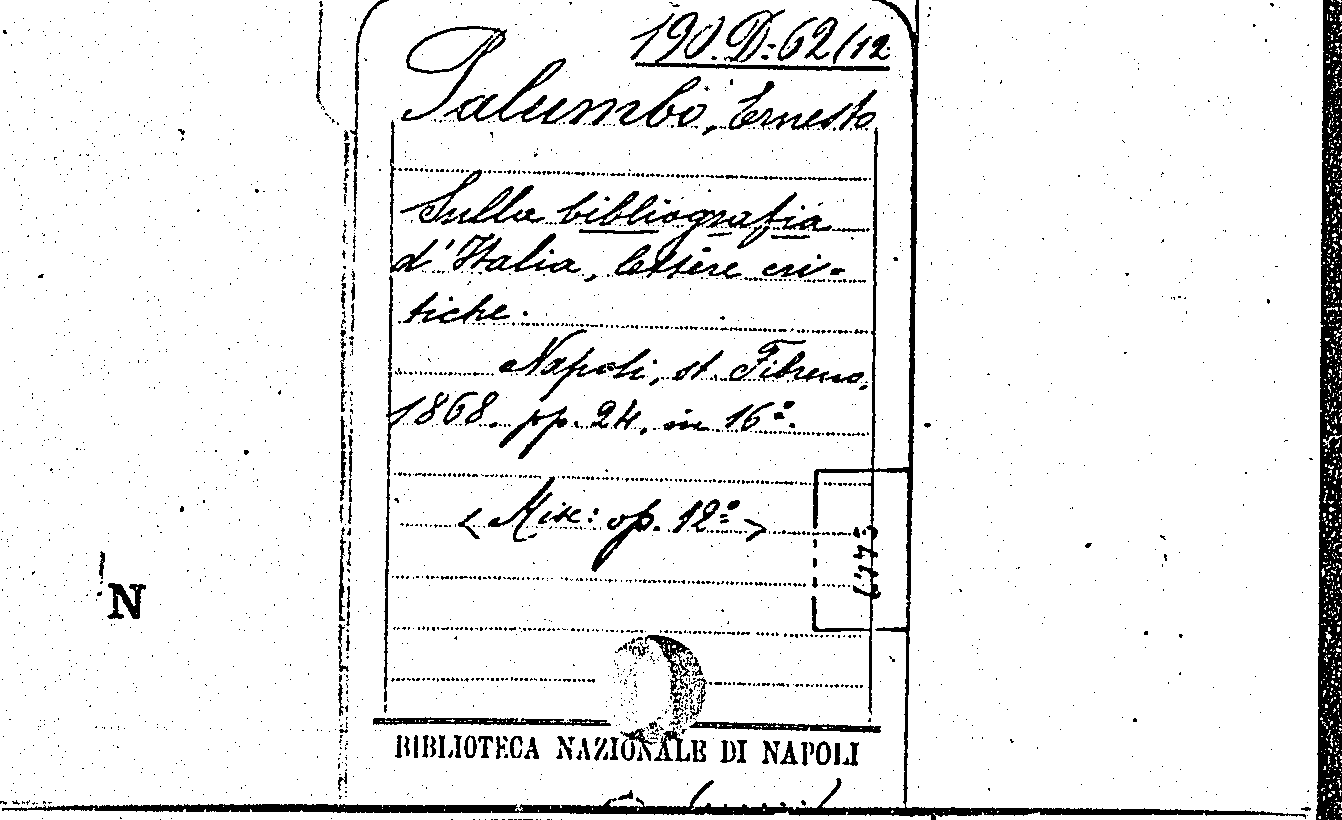 190. D: 62 (12
Palumbo, Ernesto
Sulla bibliografia
d'Italia, lettere cri-
tiche.
Napoli, st. Fibreno,
1868. pp. 24, in 16º.
< Misc: op. 12º >
N
BIBLIOTECA NAZIONALE DI NAPOLI